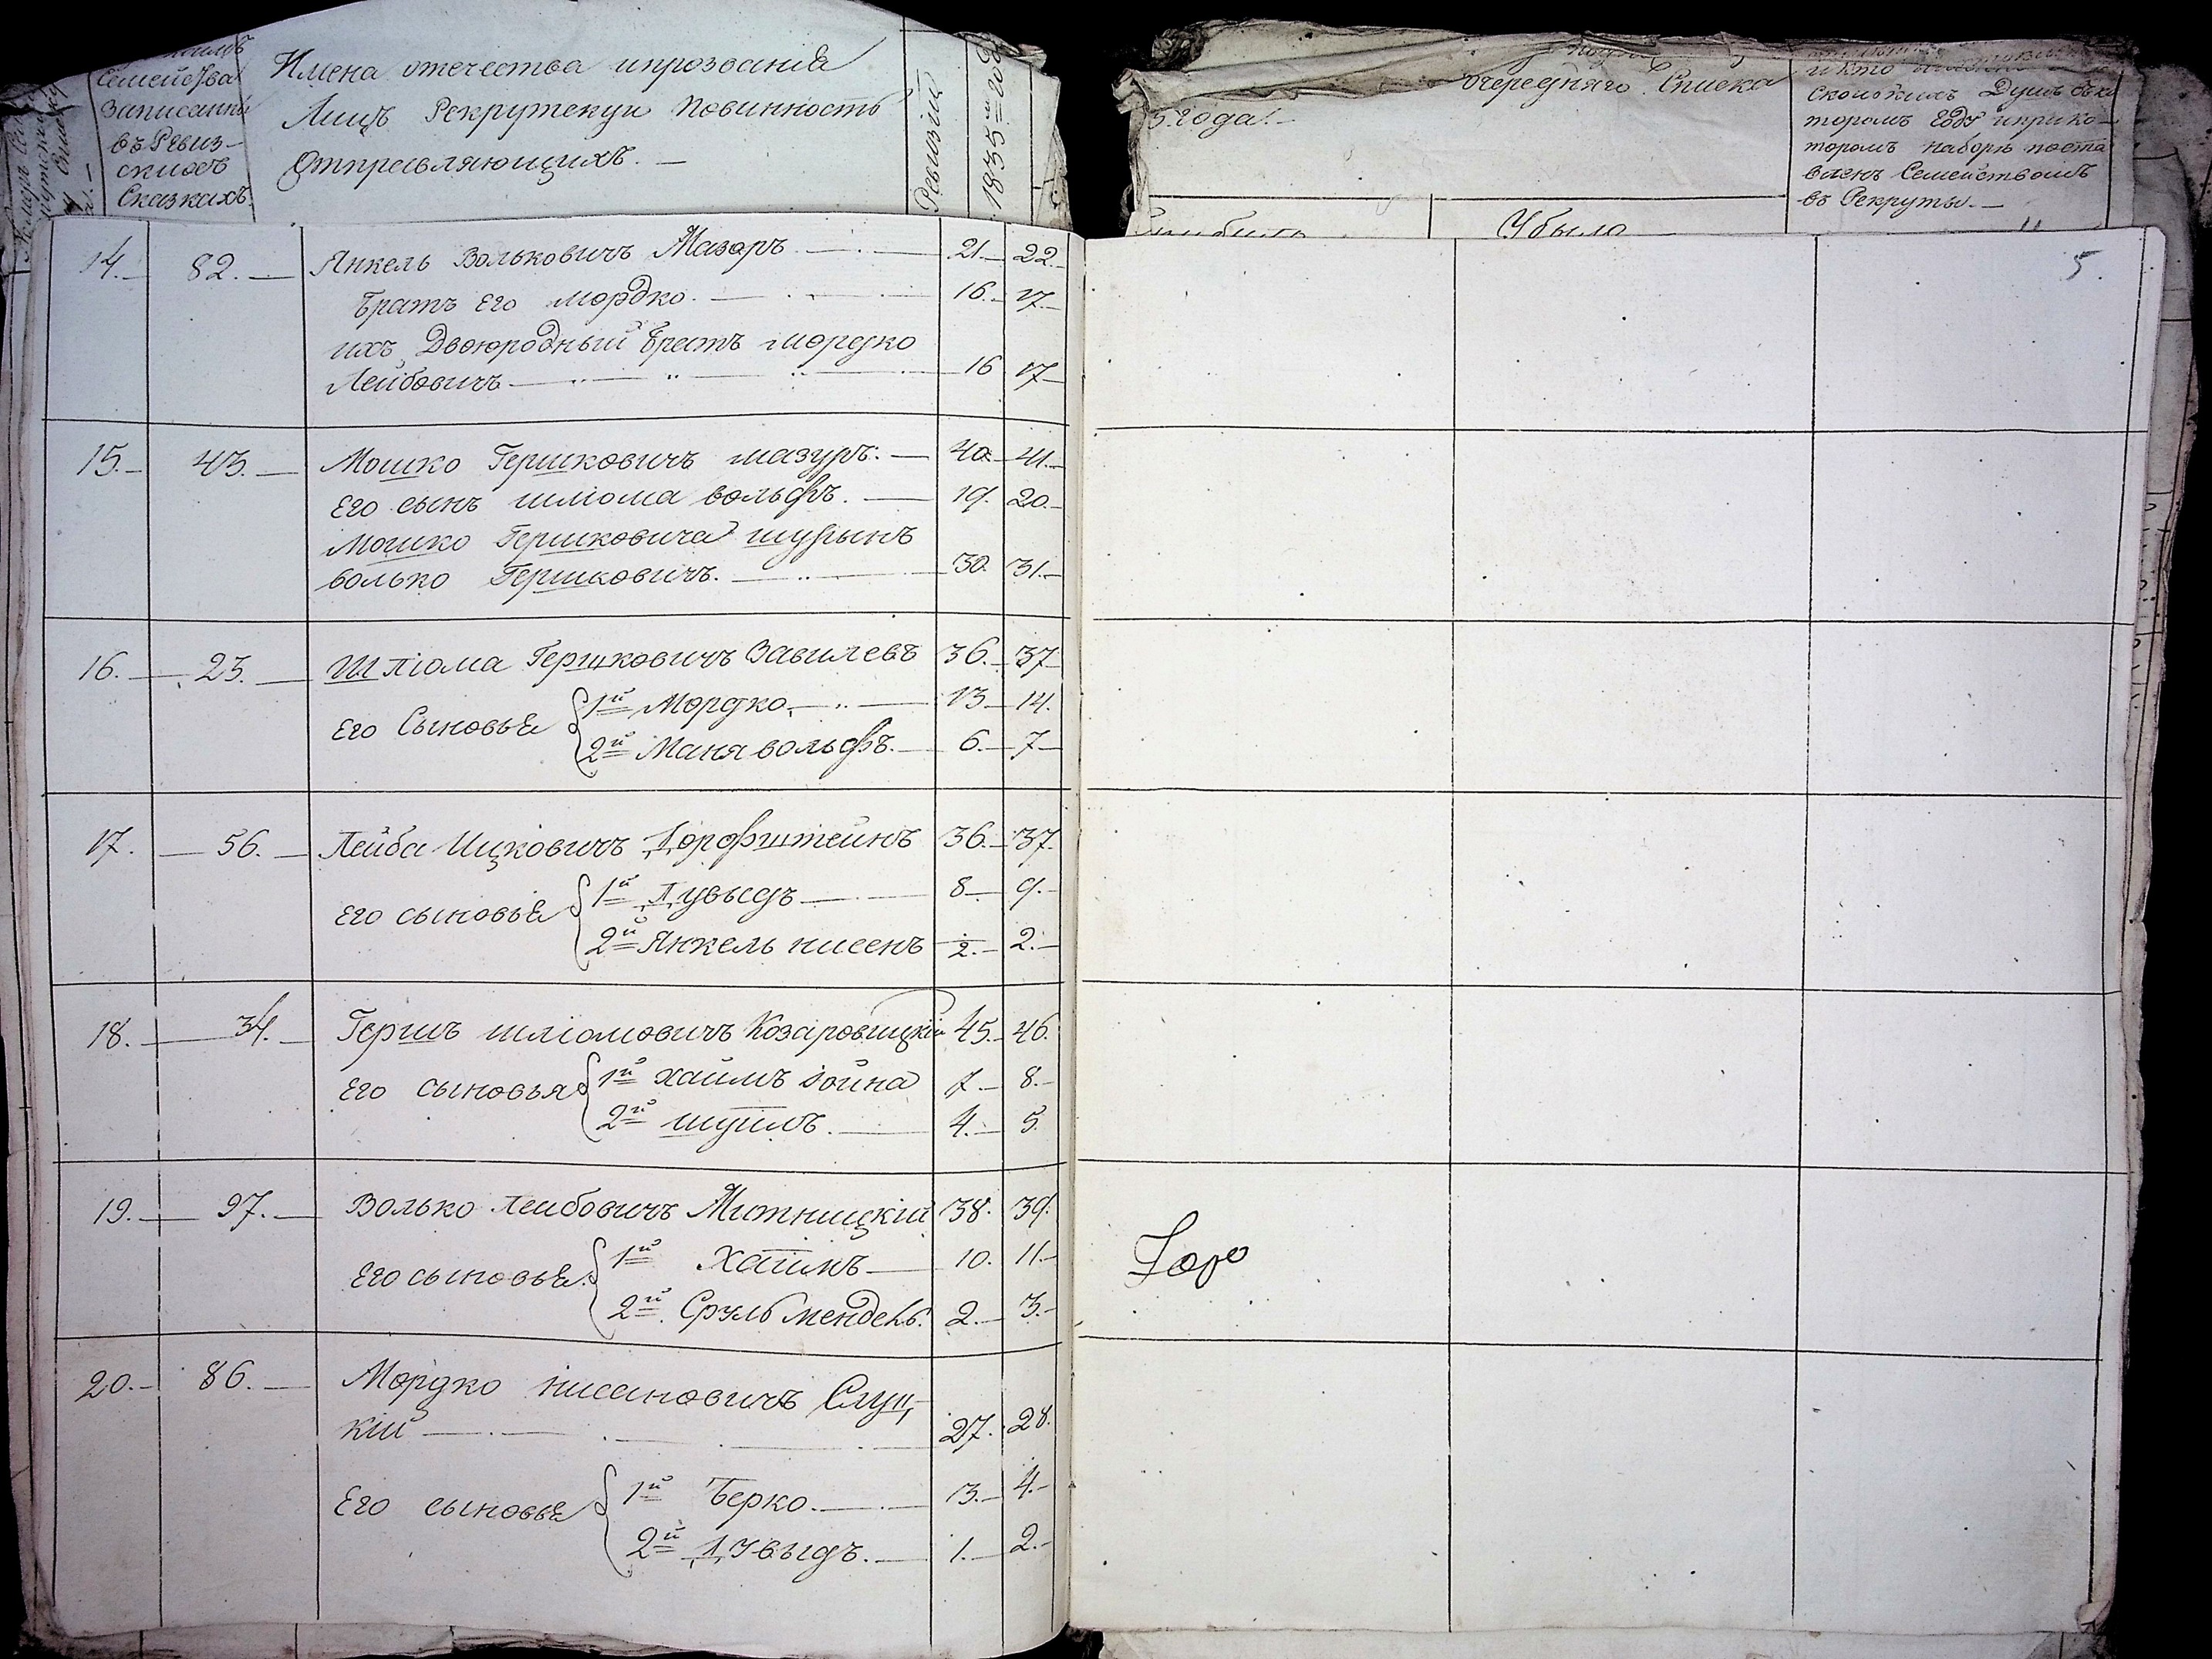 Семейства
Записанны
въ Ревиз-
скихъ
Сказкахъ.
Имена отечества и прозвания
Лицъ Рекрутскую повинность
Отправляющихъ. —
Ревизiи
1835 го
5 года. —
очередняго Списка
Убыло
и кто
сколькихъ Душъ въ ко
торомъ году и при ко-
торомъ наборѣ поста
вленъ Семействомъ
въ Рекруты. —
5.
14. — 82. — Янкель Вольковичъ Мазоръ — 21. — 22. —
братъ Его Мордко. — 16. — 17 —
ихъ Двоюродный братъ Мордко
Лейбовичъ — 16 17 —
15. — 43. — Мошко Гершковичъ мазуръ. — 40. — 41. —
Его сынъ шлiома вольфъ. — 19. 20. —
Мошко Гершковича шурынъ
волько Гершковичъ. — 30. 31. —
16. — 23. — Шлiома Гершковичъ Завилевъ 36. — 37 —
Его Сыновья 1й Мордко. — 13 — 14.
2й Маня вольфъ. — 6. — 7 —
17. — 56. — Лейба Ицковичъ Дорфштейнъ 36. — 37.
Его сыновья 1й Дувыдъ — 8 — 9. —
2й Янкель нисенъ 1/2. — 2. —
18. — 34. — Гершъ шлiомовичъ Козаровицкiй 45. — 46.
Его сыновья 1й хаимъ iойна 7 — 8. —
2й шуимъ. — 4. — 5.
19. — 97. — Волько Леибовичъ Митницкiй 38. 39.
Его сыновья. 1й Хаимъ — 10. 11. —
2й Сруль мендель. 2. — 3. —
20. — 86. — Мордко нисановичъ Слуц-
кiй — 27. 28.
Его сыновья 1й Берко. — 3. — 4. —
2й Дувыдъ. — 1. — 2. —